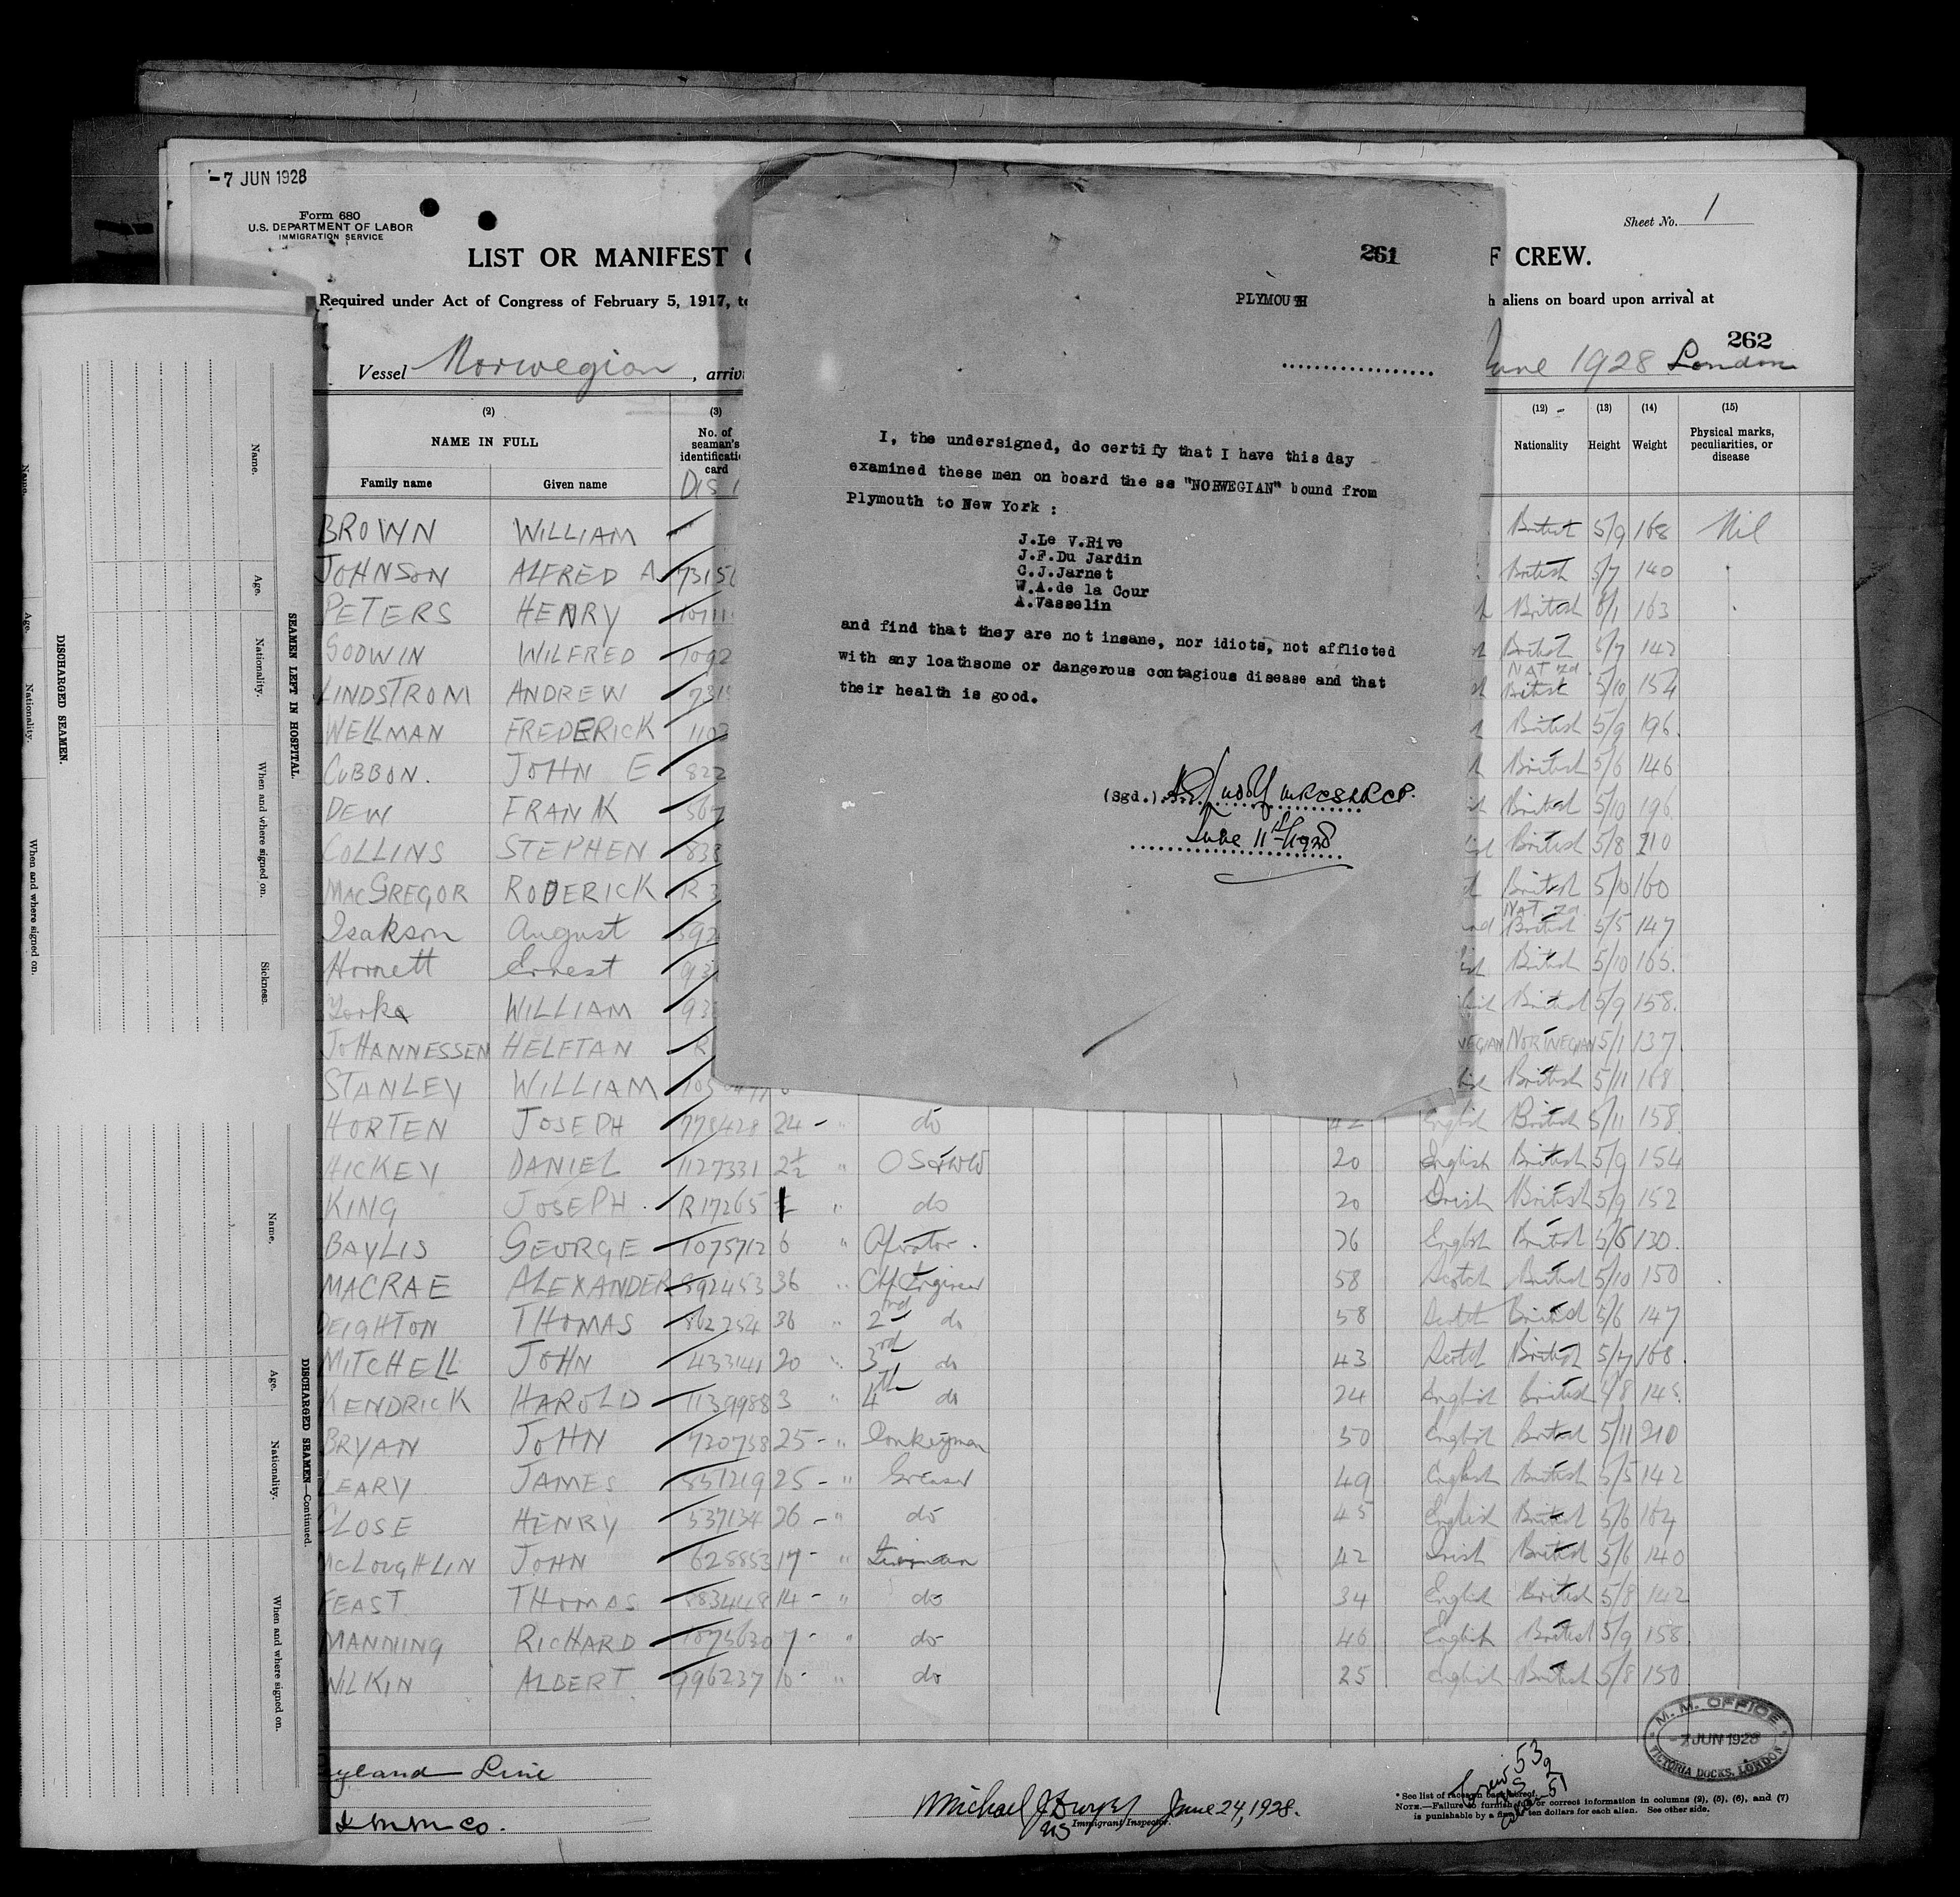 -7 JUN 1928
Form 680
U.S. DEPARTMENT OF LABOR
IMMIGRATION SERVICE
Sheet No. 1
LIST OR MANIFEST
F CREW.
Required under Act of Congress of February 5, 1917, to
h aliens on board upon arrival at
262
Vessel Norwegian, arrivi
une 1928 London
261
PLYMOUTH
I, the undersigned, do certify that I have this day
examined these men on board the ss "NORWEGIAN" bound from
Plymouth to New York :
J.Le V.Rive
J.F.Du Jardin
C.J.Jarnet
W.A.de la Cour
A.Vasselin
and find that they are not insane, nor idiots, not afflicted
with any loathsome or dangerous contagious disease and that
their health is good.
(Sgd.) MRCS LRCP.
June 11th/1928
(2) (3) (12) (13) (14) (15)
NAME IN FULL
Family name Given name
No. of seaman's identificati card
Nationality Height Weight Physical marks, peculiarities, or disease
BROWN WILLIAM British 5/9 168 Nil
JOHNSON ALFRED A. British 5/7 140
PETERS HENRY British 6/1 163
GODWIN WILFRED British 5/7 142
LINDSTROM ANDREW British 5/10 154
WELLMAN FREDERICK British 5/9 196
CUBBON. JOHN E British 5/6 146
DEW FRANK British 5/10 196
COLLINS STEPHEN British 5/8 210
MACGREGOR RODERICK British 5/10 160
Isakson August British 5/5 147
Hornett Ernest British 5/10 165.
Yorke WILLIAM British 5/9 158.
JOHANNESSEN HELFTAN NORWEGIAN 5/1 137
STANLEY WILLIAM British 5/11 168
HORTEN JOSEPH 778428 24 - " do 42 English British 5/11 158
HICKEY DANIEL 1127331 2½ " 20 English British 5/9 154
KING JOSEPH R 17265 " do 20 Irish British 5/9 152
BAYLIS GEORGE 1075712 6 " Operator. 26 English British 5/6 130.
MACRAE ALEXANDER 892453 36 " Chf Engineer 58 Scotch British 5/10 150
DEIGHTON THOMAS 862254 36 " 2nd do 58 Scotch British 5/6 147
MITCHELL JOHN 433141 20 " 3rd do 43 Scotch British 5/7 168
KENDRICK HAROLD 1139988 3 " 4th do 24 English British 5/8 145
BRYAN JOHN 730758 25 - " Donkeyman 50 English British 5/11 210
LEARY JAMES 851219 25 - " Greaser 49 English British 5/5 142
CLOSE HENRY 537134 26 - " do 45 English British 5/6 164
MCLOUGHLIN JOHN 628853 17 - " Fireman 42 Irish British 5/6 140
FEAST THOMAS 883448 14 - " do 34 English British 5/8 142
MANNING RICHARD 1075630 7 - " do 46 English British 5/9 158
WILKIN ALBERT 996237 10 - " do 25 English British 5/8 150
yland Line
I M M Co.
Michael J Dwyer June 24, 1928.
Immigrant Inspector.
* See list of races on back hereof.
NOTE.—Failure to furnish full or correct information in columns (2), (5), (6), and (7)
is punishable by a fine of ten dollars for each alien. See other side.
M. M. OFFICE
-7 JUN 1928
VICTORIA DOCKS, LONDON
DISCHARGED SEAMEN.
Name. Age. Nationality. When and where signed on.
SEAMEN LEFT IN HOSPITAL.
Name. Age. Nationality. When and where signed on. Sickness.
DISCHARGED SEAMEN—Continued.
Name. Age. Nationality. When and where signed on.